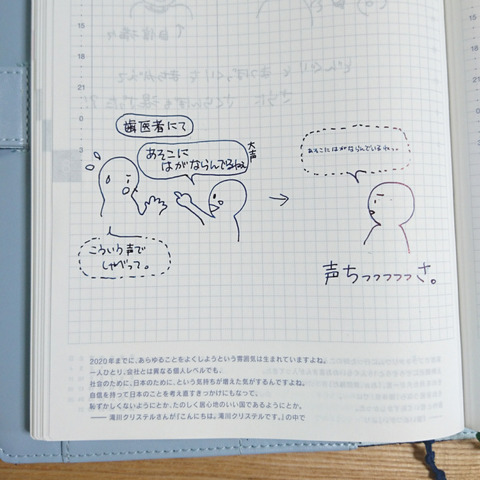 15
18
21
0
3
歯医者にて
あそこに
はがならんでるねぇ
大声
こういう声で
しゃべって。
→
あそこにはがならんでいるねぇ。
声ちっっっっっさ。
2020年までに、あらゆることをよくしようという雰囲気は生まれていますよね。
一人ひとり、会社とは異なる個人レベルでも。
社会のために、日本のために、という気持ちが増えた気がするんですよね。
自信を持って日本のことを考え直すきっかけにもなって、
恥ずかしくないようにとか、たのしく居心地のいい国であるようにとか。
—— 滝川クリステルさんが『こんにちは。滝川クリステルです。』の中で